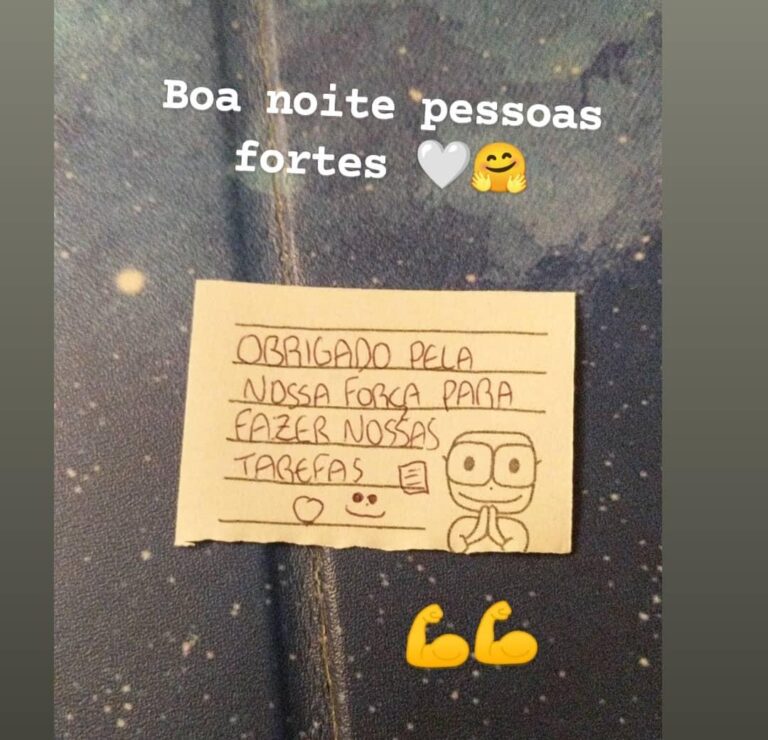 Boa noite pessoas
fortes 🤍🤗
OBRIGADO PELA
NOSSA FORÇA PARA
FAZER NOSSAS
TAREFAS
💪💪